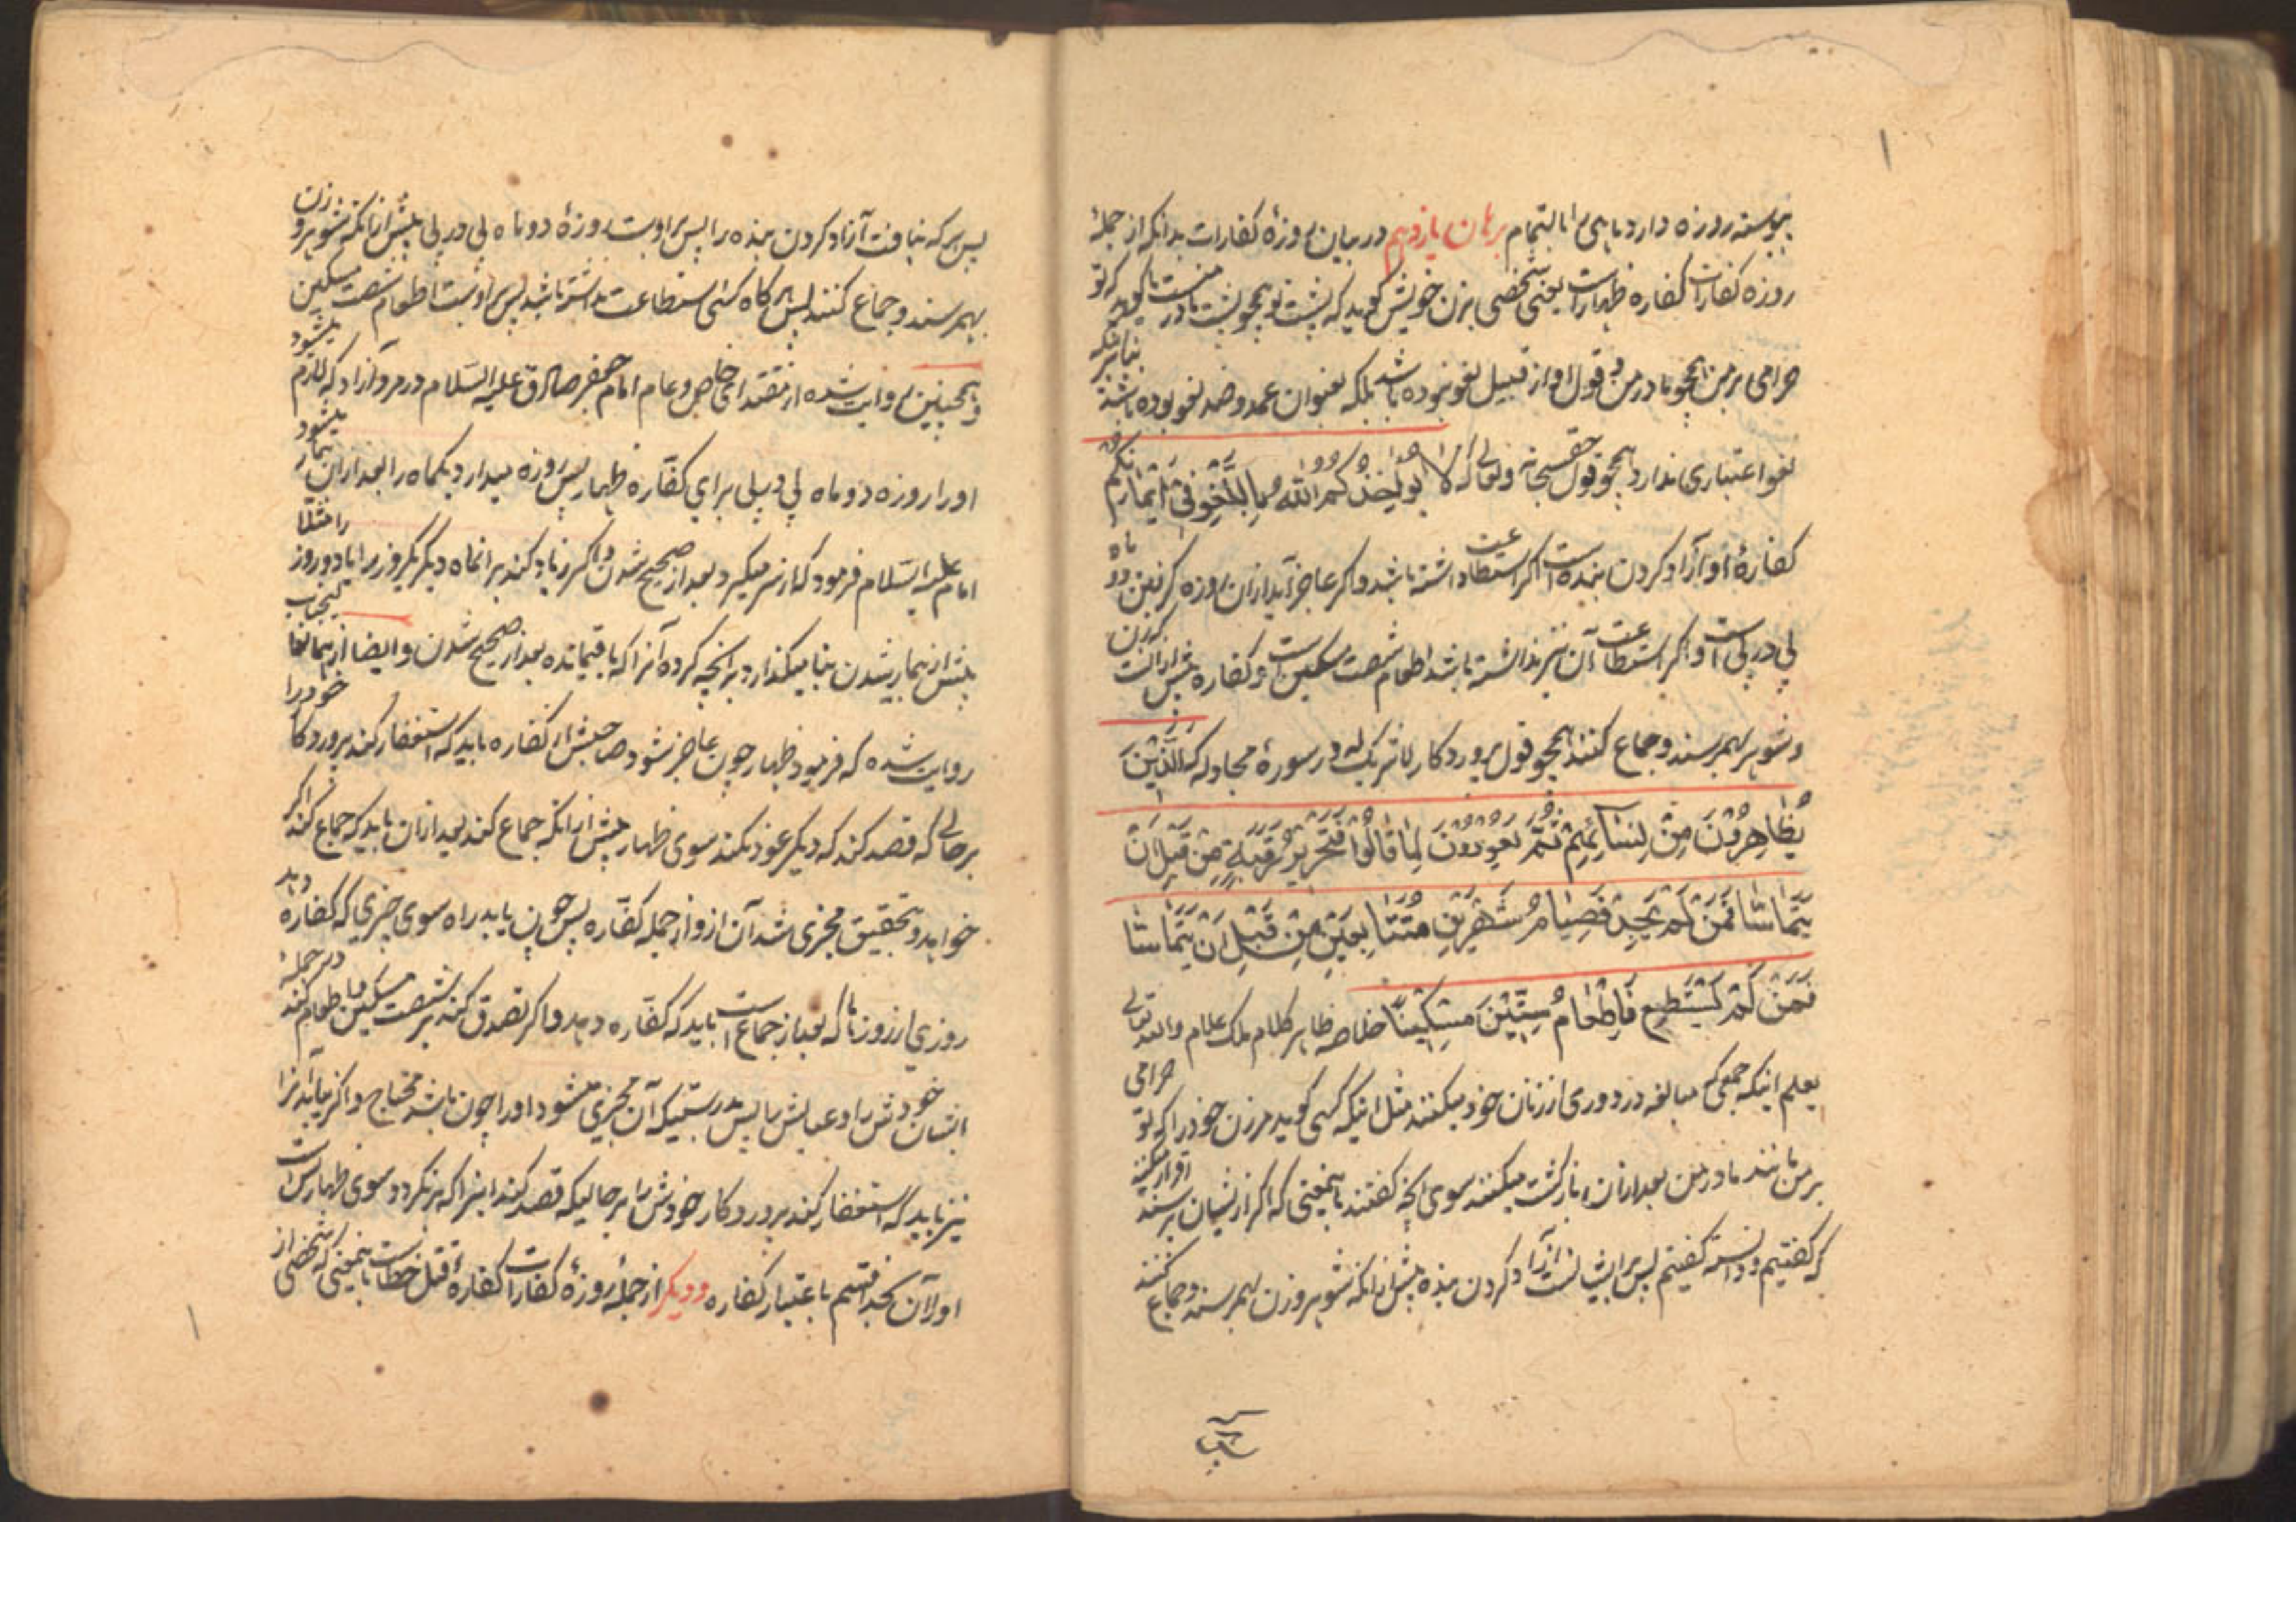 پیوسته روزه دارد ماهی را بالتمام برهان یازدهم در بیان روزهٔ کفارات بدانکه از جملهٔ
روزه کفارات کفاره ظهارست یعنی شخصی بزن خویش گوید که پشت تو همچو پشت مادر منست یا گوید که تو
حرامی بر من همچو مادر من و قول او از قبیل لغو نبوده باشد بلکه بعنوان عمد و ضد لغو بوده باشد بنابر آنکه
لغو اعتباری ندارد همچو قول حق سبحانه و تعالی که لا یؤاخذکم الله باللغو فی ایمانکم
کفارهٔ او آزاد کردن بنده است اگر استطاعت داشته باشد و اگر عاجز آید از آن روزه گرفتن دو ماه
پی در پی است و اگر استطاعت آن نیز نداشته باشد اطعام شصت مسکین است و کفاره پیش از آنست که زن
و شوهر بهم رسند و جماع کنند همچو قول پروردگار لا شریک له در سورهٔ مجادله که الَّذِینَ
یُظَاهِرُونَ مِنْ نِسَائِهِمْ ثُمَّ یَعُودُونَ لِمَا قَالُوا فَتَحْرِیرُ رَقَبَةٍ مِنْ قَبْلِ أَنْ
یَتَمَاسَّا فَمَنْ لَمْ یَجِدْ فَصِیَامُ شَهْرَیْنِ مُتَتَابِعَیْنِ مِنْ قَبْلِ أَنْ یَتَمَاسَّا
فَمَنْ لَمْ یَسْتَطِعْ فَإِطْعَامُ سِتِّینَ مِسْکِینًا خلاصه ظاهر کلام ملک علام والله تعالی
یعلم اینکه جمعی که مبالغه در دوری از زنان خود میکنند مثل اینکه کسی گوید مر زن خود را که تو حرامی
بر من مانند مادر من بعد از آن بازگشت میکنند سوی آنچه گفتند باینمعنی که اگر از ایشان پرسند اقرار میکنند
که گفتیم و دانسته گفتیم پس بر ایشانست آزاد کردن بنده پیش از آنکه شوهر و زن بهم رسند و جماع کنند
پس هر که نیافت آزاد کردن بنده را پس بر اوست روزهٔ دو ماه پی در پی پیش از آنکه شوهر و زن
بهم رسند و جماع کنند پس هر گاه کسی استطاعت نداشته باشد پس بر اوست اطعام شصت مسکین
و همچنین روایت شده از مقتدای خاص و عام امام جعفر صادق علیه السلام در مرد آزاد که لازم میشود
او را روزه دو ماه پی در پی برای کفاره ظهار پس روزه میدارد یکماه را بعد از آن بیمار میشود
امام علیه السلام فرمود که از سر میگیرد بعد از صحیح شدن و اگر زیاد کند بر آنماه دیگر یکروز را یا دو روز را مثلا
پیش از بیمار شدن بنا میگذارد بر آنچه کرده آنرا که باقیمانده بعد از صحیح شدن و ایضا از همان
روایت شده که فرمود ظهار چون عاجز شود صاحبش از کفاره باید که استغفار کند پروردگار خود را
بر حالی که قصد کند که دیگر عود نکند سوی ظهار پیش از آنکه جماع کند بعد از آن باید که جماع کند اگر
خواهد و بتحقیق مجزی شد آن از و از جمله کفاره پس چون یابد راه سوی چیزی که کفاره دهد
روزی از روزها که بعد از جماع است باید که کفاره دهد و اگر تصدق کند بر شصت مسکین و اطعام کند در جمله
ایشان خودش را و عیالش را پس بدرستیکه آن مجزی میشود او را چون باشد محتاج و اگر نیابد آنرا
نیز باید که استغفار کند پروردگار خودش را بر حالیکه قصد کند اینرا که برنگردد سوی ظهار پس است
او را آن بخدا قسم باعتبار کفاره و دیگر از جملهٔ روزهٔ کفارات کفارهٔ قتل خطاست باینمعنی که شخصی از